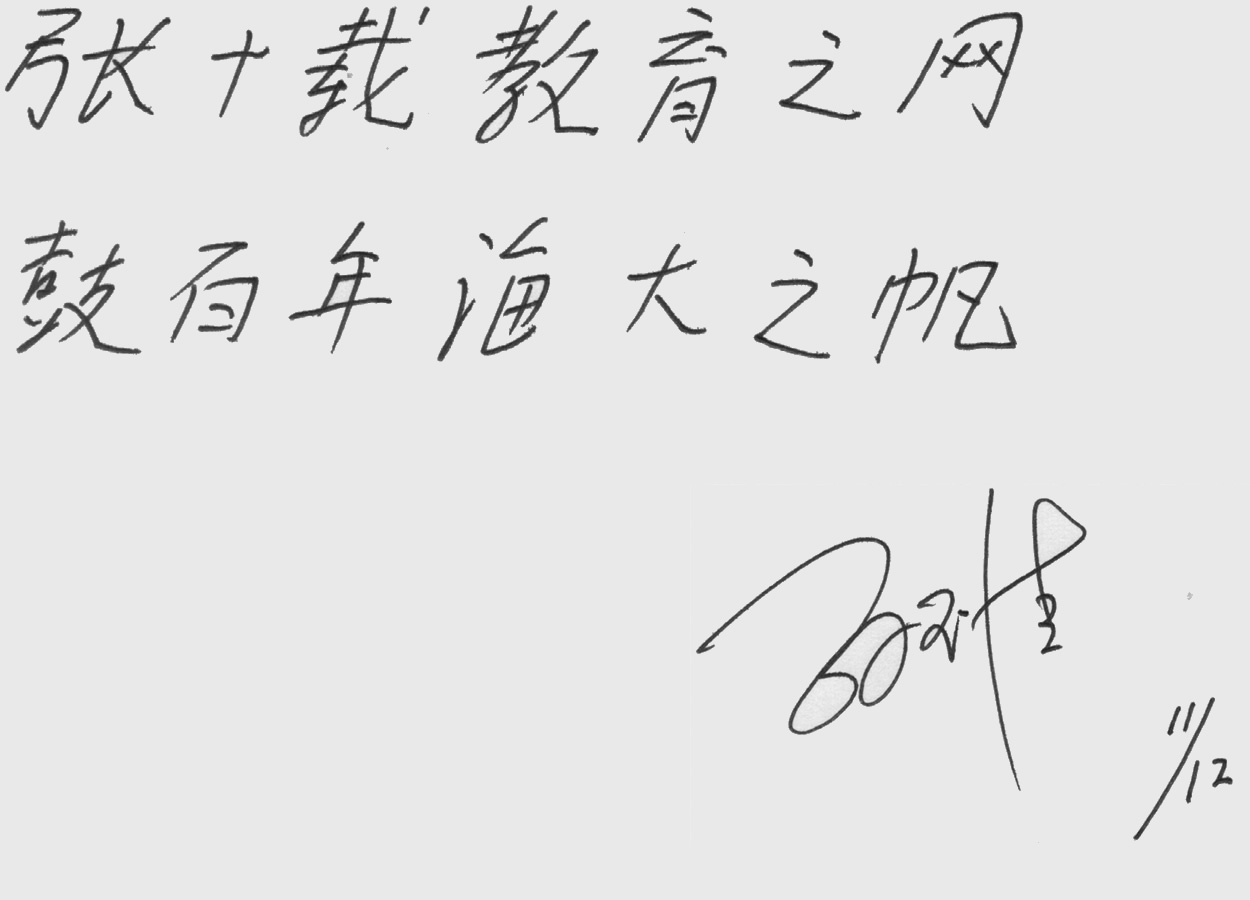 张十载教育之网
鼓百年海大之帆
11/12